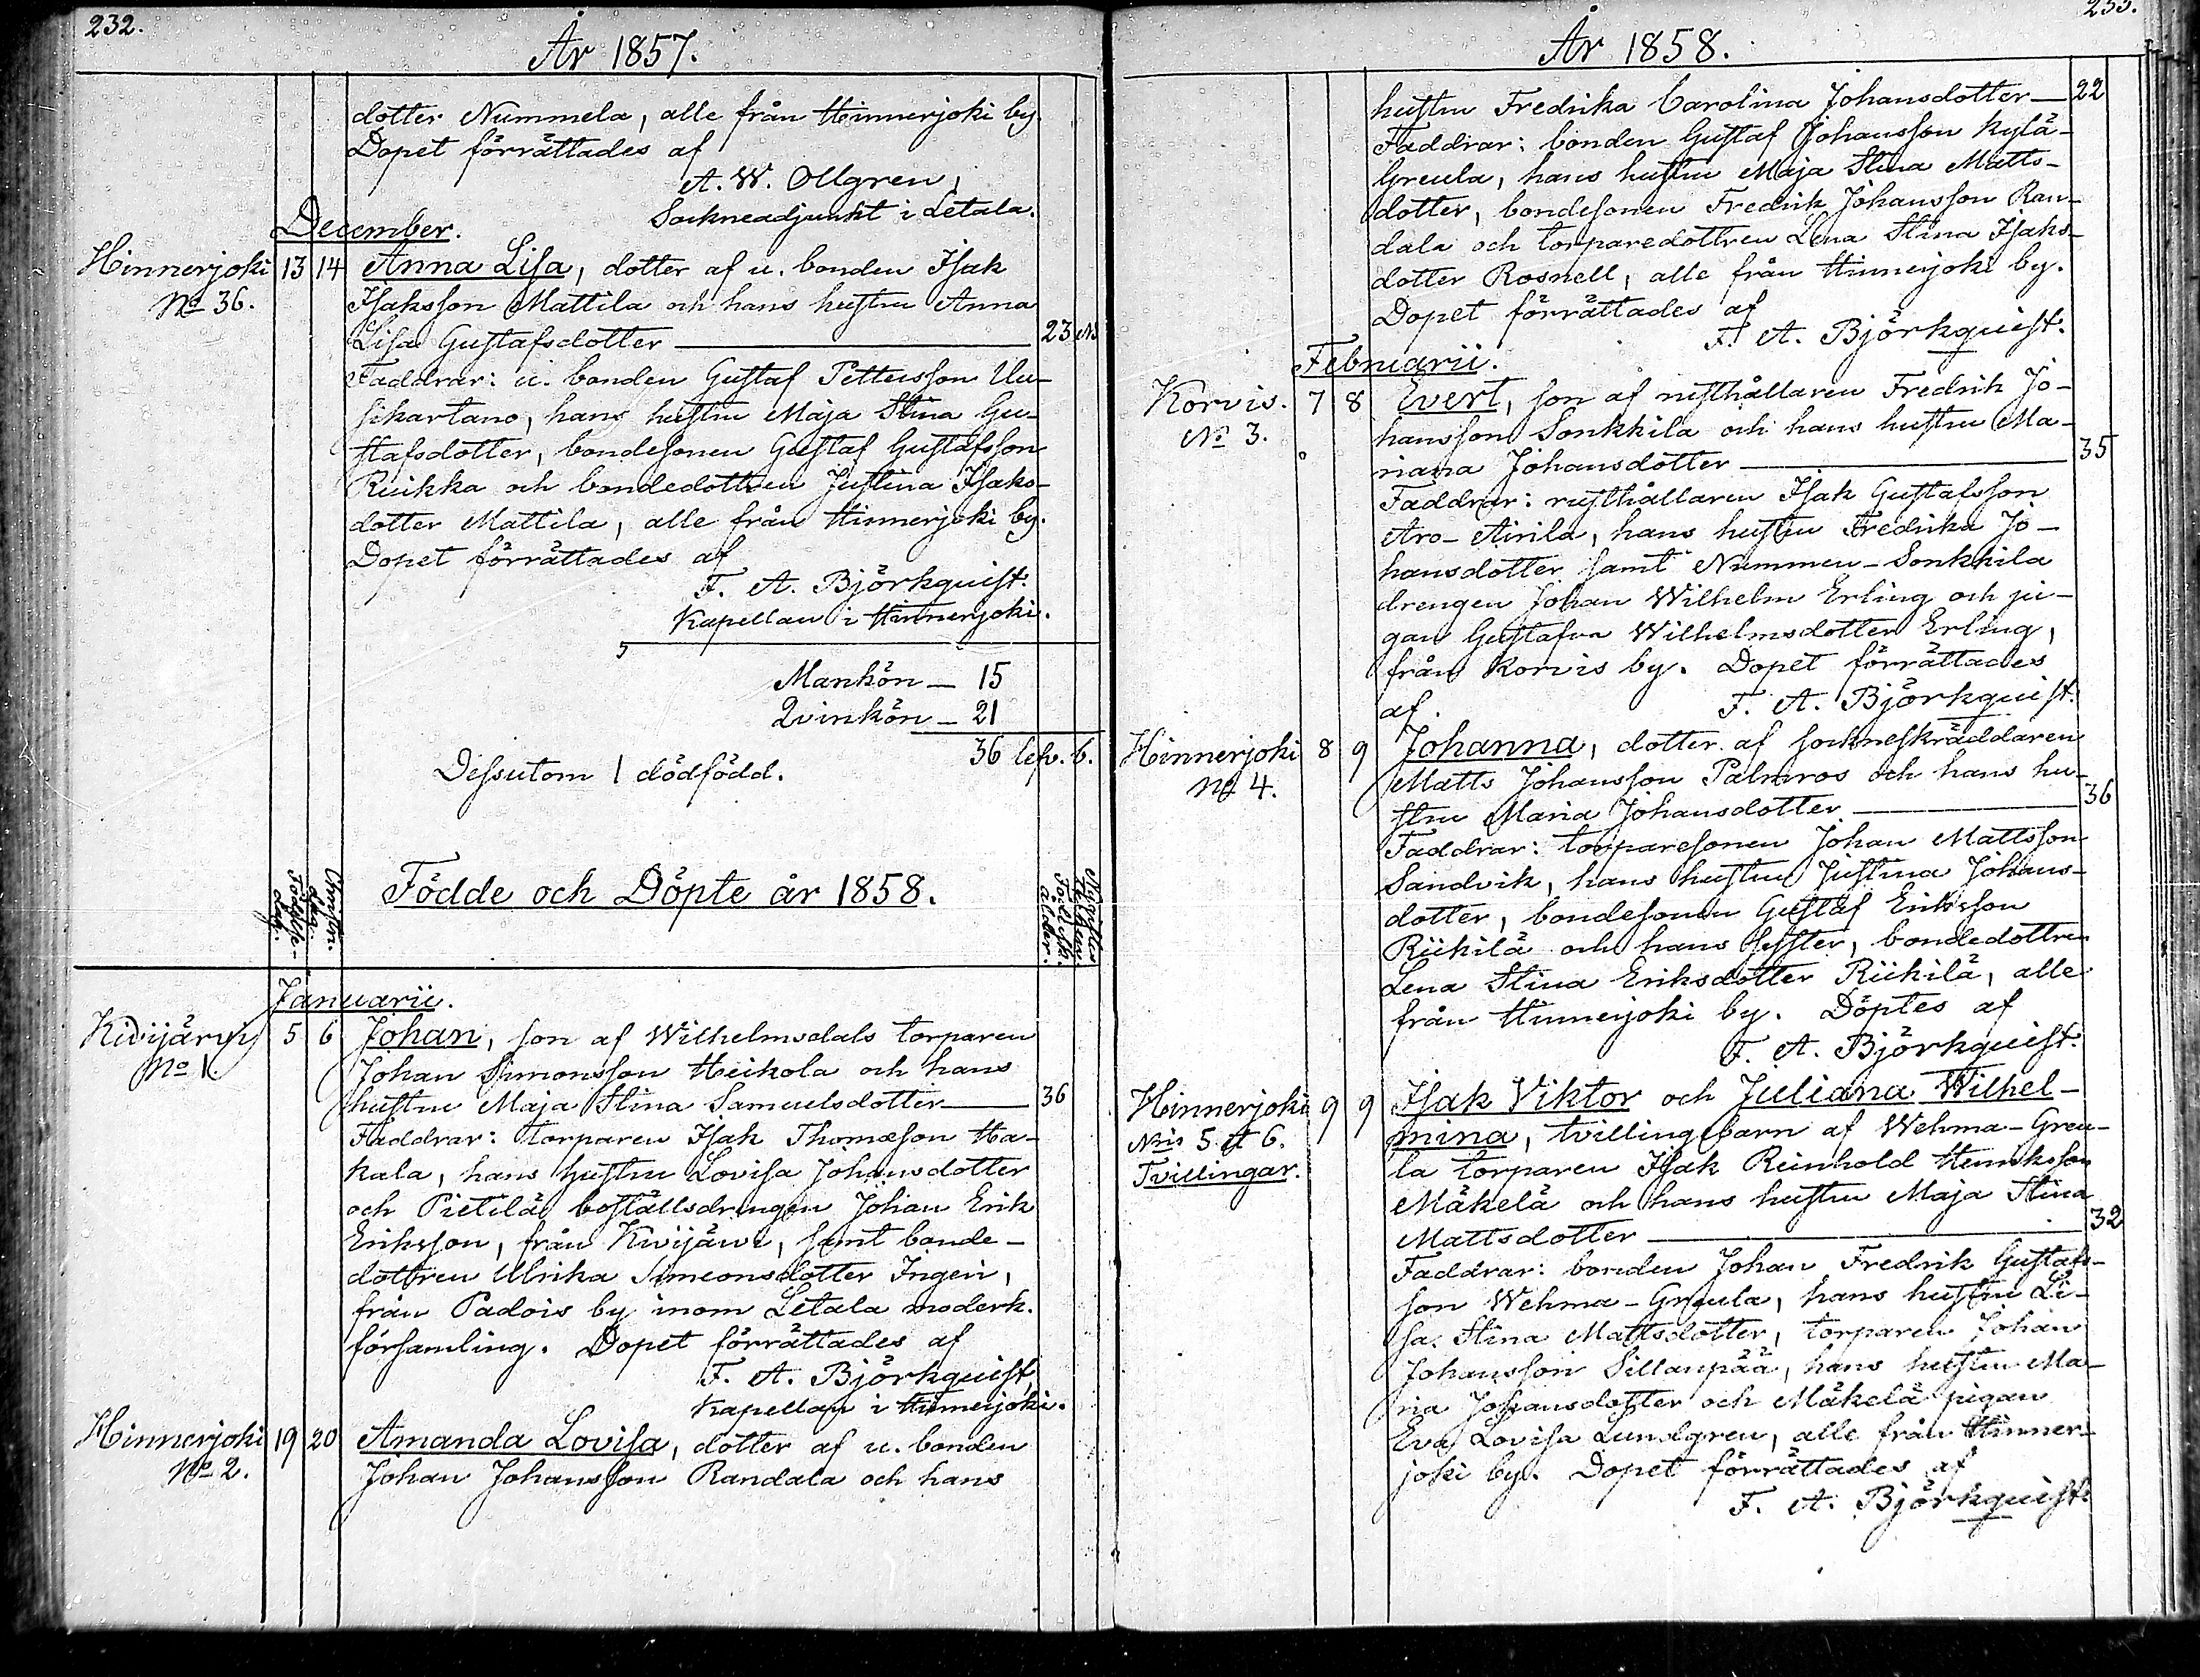 232.
År 1857.
dotter Nummela, alle från Hinnerjoki by.
Dopet förrättades af
A. W. Ollgren,
Sockneadjunkt i Letala.
December.
Hinnerjoki 13 14 Anna Lisa, dotter af u. bonden Isak
No 36. Isaksson Mattila och hans hustru Anna
Lisa Gustafsdotter — 23
Faddrar: u. bonden Gustaf Pettersson Uu-
sikartano, hans hustru Maja Stina Gu-
stafsdotter, bondesonen Gustaf Gustafsson
Ruikka och bondedottren Justina Isaks-
dotter Mattila, alle från Hinnerjoki by.
Dopet förrättades af
F. A. Björkquist.
Kapellan i Hinnerjoki.
Mankön — 15
Qvinkön — 21
36 lefv. b.
Dessutom 1 dödfödd.
Födde och Döpte år 1858.
Födelse-
dag.
Christn.
dag.
Januarii.
Kivijärvy 5 6 Johan, son af Wilhelmsdals torparen
No 1. Johan Simonsson Heikola och hans
hustru Maja Stina Samuelsdotter — 36
Faddrar: torparen Isak Thomasson Ha-
kala, hans hustru Lovisa Johansdotter
och Pietilä boställsdrengen Johan Erik
Eriksson, från Kivijärvi, samt bonde-
dottren Ulrika Simeonsdotter Ingeri,
från Padois by inom Letala moderk.
församling. Dopet förrättades af
F. A. Björkquist,
Kapellan i Hinnerjoki.
Hinnerjoki 19 20 Amanda Lovisa, dotter af u. bonden
No 2. Johan Johansson Randala och hans
233.
År 1858.
hustru Fredrika Carolina Johansdotter — 22
Faddrar: bonden Gustaf Johansson Kylä-
Greula, hans hustru Maja Stina Matts-
dotter, bondesonen Fredrik Johansson Ran-
dala och torparedottren Lena Stina Isaks-
dotter Rosnell, alle från Hinnerjoki by.
Dopet förrättades af
F. A. Björkquist.
Februarii.
Korvis. 7 8 Evert, son af rusthållaren Fredrik Jo-
No 3. hansson Sonkkila och hans hustru Ma-
riana Johansdotter — 35
Faddrar: rusthållaren Isak Gustafsson
Aro-Airila, hans hustru Fredrika Jo-
hansdotter samt Nummen-Sonkkila
drengen Johan Wilhelm Erling och pi-
gan Gustafva Wilhelmsdotter Erling,
från Korvis by. Dopet förrättades
af. F. A. Björkquist.
Hinnerjoki 8 9 Johanna, dotter af sockneskräddaren
No 4. Matts Johansson Palmros och hans hu-
stru Maria Johansdotter — 36
Faddrar: torparesonen Johan Mattsson
Sandvik, hans hustru Justina Johans-
dotter, bondesonen Gustaf Eriksson
Riikilä och hans syster, bondedottren
Lena Stina Eriksdotter Riikilä, alle
från Hinnerjoki by. Döptes af
F. A. Björkquist.
Hinnerjoki 9 9 Isak Viktor och Juliana Wilhel-
Nris 5 et 6. mina, tvillingebarn af Wehma-Greu-
Tvillingar. la torparen Isak Reinhold Henriksson
Mäkelä och hans hustru Maja Stina
Mattsdotter — 32
Faddrar: bonden Johan Fredrik Gustafs-
son Wehma-Greula, hans hustru Li-
sa Stina Mattsdotter, torparen Johan
Johansson Sillanpää, hans hustru Ma-
ria Johansdotter och Mäkelä pigan
Eva Lovisa Lundgren, alle från Hinner-
joki by. Dopet förrättades af
F. A. Björkquist.